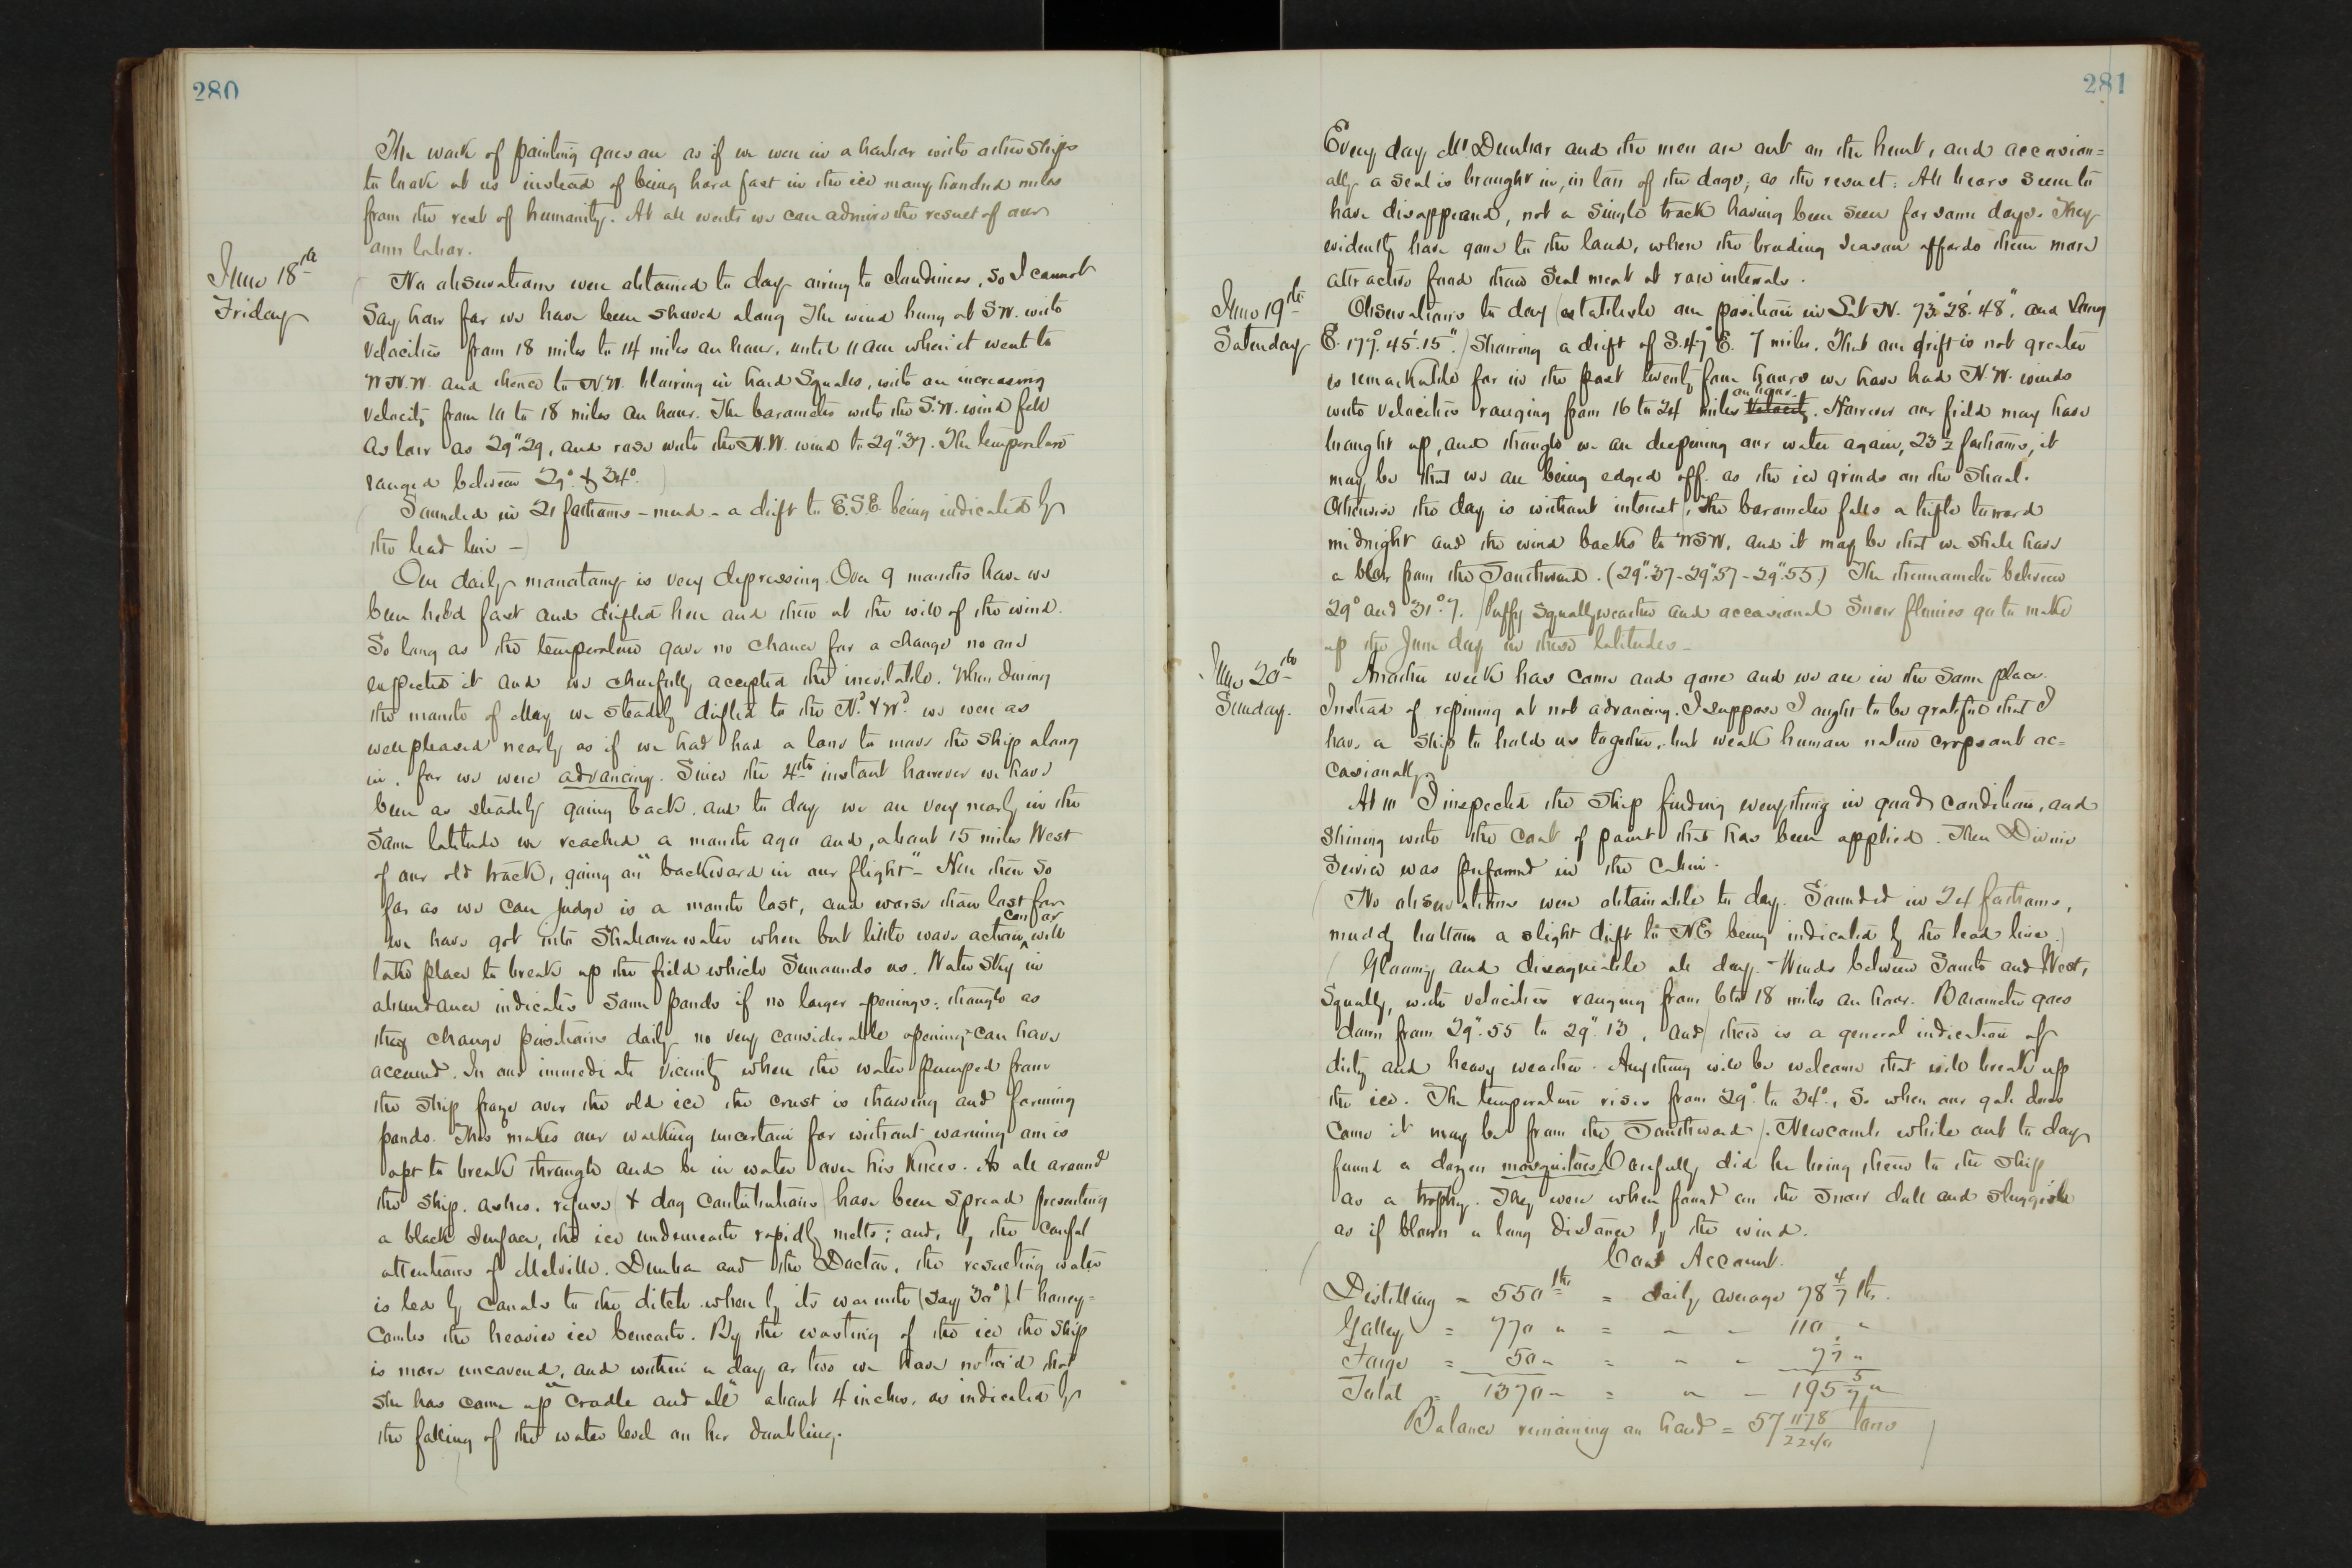 280
The work of painting goes on as if we were in a harbor with other ships
to look at us instead of being hard fast in the ice many hundred miles
from the rest of humanity. At all events we can admire the result of our
own labor.
June 18th
Friday
No observations were obtained to day owing to cloudiness, so I cannot
say how far we have been shoved along The wind hung at S W. with
velocities from 18 miles to 14 miles an hour, until 11 am when it went to
W N. W. and thence to N W. blowing in hard squalls, with an increasing
velocity from 10 to 18 miles an hour. The barometer with the S. W. wind fell
as low as 29".29, and rose with the N. W. wind to 29".37. The temperature
ranged between 29° & 34°.)
( Sounded in 21 fathoms - mud - a drift to E. S E. being indicated by
the lead line —)
Our daily monotony is very depressing. Over 9 months have we
been held fast and drifted here and there at the will of the wind.
So long as the temperature gave no chance for a change no one
expected it and we cheerfully accepted the inevitable. When during
the month of May we steadily drifted to the Nd & Wd we were as
well pleased nearly as if we had had a lane to move the ship along
in, for we were advancing. Since the 4th instant however we have
been as steadily going back. and to day we are very nearly in the
same latitude we reached a month ago and, about 15 miles West
of our old track, going on "backward in our flight" - Here then so
far as we can judge is a month lost, and worse than lost for
we have got into shallower water where but little wave action can or will
take place to break up the field which surrounds us. Water sky in
abundance indicates some ponds if no larger openings: though as
they change positions daily no very considerable opening can have
occurred. In our immediate vicinity where the water pumped from
the ship froze over the old ice the crust is thawing and forming
ponds. This makes our walking uncertain for without warning one is
apt to break through and be in water over his knees. As all around
the ship. ashes. refuse (& dog contributions) have been spread presenting
a black surface, the ice underneath rapidly melts; and, by the careful
attentions of Melville. Dunbar and the Doctor, the resulting water
is led by canals to the ditch where by its warmth (say 30°) it honey=
combs the heavier ice beneath. By the wasting of the ice the ship
is more uncovered, and within a day or two we have noticed that
she has come up "cradle and all" about 4 inches, as indicated by
the falling of the water level on her doubling.
281
Every day Mr Dunbar and the men are out on the hunt, and occasion=
ally a seal is brought in, in lieu of the dogs, as the result. All bears seem to
have disappeared, not a single track having been seen for some days. They
evidently have gone to the land, where the breeding season affords them more
attractive food than seal meat at rare intervals.
June 19th
Saturday
Observations to day (establish our position in Lat N. 73° 28'. 48", and Long
E. 177°. 45'. 15".) showing a drift of S. 47° E. 7 miles. That our drift is not greater
is remarkable for in the past twenty four hours we have had N. W. winds
with velocities ranging from 16 to 24 miles an hour. velocity. However our field may have
brought up, and though we are deepening our water again, 23 1/2 fathoms, it
may be that we are being edged off. as the ice grinds on the shoal.
Otherwise the day is without interest (. The barometer falls a trifle toward
midnight and the wind backs to WSW. and it may be that we shall have
a blow from the Southward. (29".37 - 29".57 - 29".55.) The thermometer between
29° and 31°.7. (Puffy squally weather and occasional snow flurries go to make
up the June day in these latitudes -
June 20th
Sunday.
Another week has come and gone and we are in the same place.
Instead of repining at not advancing. I suppose I ought to be grateful that I
have a ship to hold us together, but weak human nature crops out oc=
casionally
At 10 I inspected the ship finding everything in good condition, and
shining with the coat of paint that has been applied. Then Divine
Service was performed in the Cabin.
( No observations were obtainable to day. Sounded in 24 fathoms,
muddy bottom a slight drift to NE being indicated by the lead line.)
( Gloomy and disagreeable all day. Winds between South and West,
squally, with velocities ranging from 6 to 18 miles an hour. Barometer goes
down from 29".55 to 29".13, and) there is a general indication of
dirty and heavy weather. Anything will be welcome that will break up
the ice. The temperature rises from 29° to 34°, so when our gale does
come it may be from the Southward). Newcomb while out to day
found a dozen mosquitoes! Carefully did he bring them to the ship
as a trophy. They were when found on the snow dull and sluggish
as if blown a long distance by the wind.
( Coal Account.
Distilling = 550 lbs = daily average 78 4/7 lbs.
Galley = 770 " = " " 110 "
Forge = 50 " = " " 7 1/7 "
Total = 1370 " = " " 195 5/7 "
Balance remaining on hand = 57 1178/2240 tons )